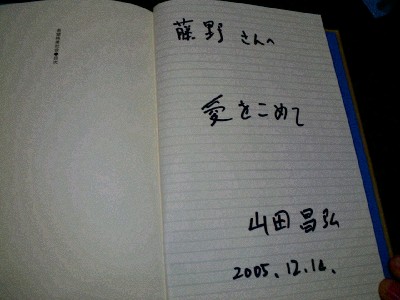 藤野さんへ
愛をこめて
山田昌弘
2005.12.14.